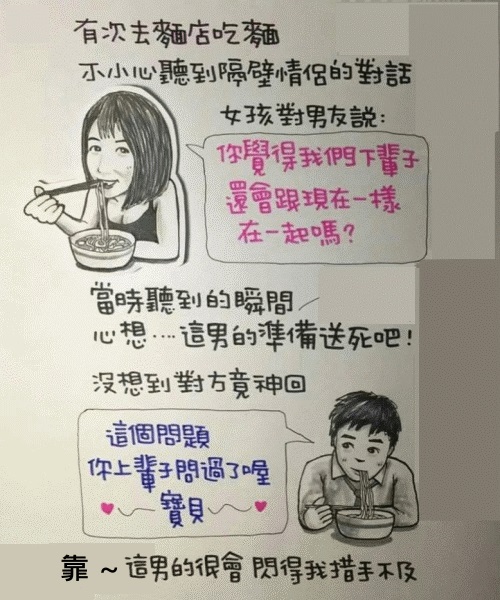 有次去麵店吃麵
不小心聽到隔壁情侶的對話
女孩對男友說:
你覺得我們下輩子
還會跟現在一樣
在一起嗎?
當時聽到的瞬間
心想....這男的準備送死吧!
沒想到對方竟神回
這個問題
你上輩子問過了喔
寶貝
靠 ~ 這男的很會 閃得我措手不及